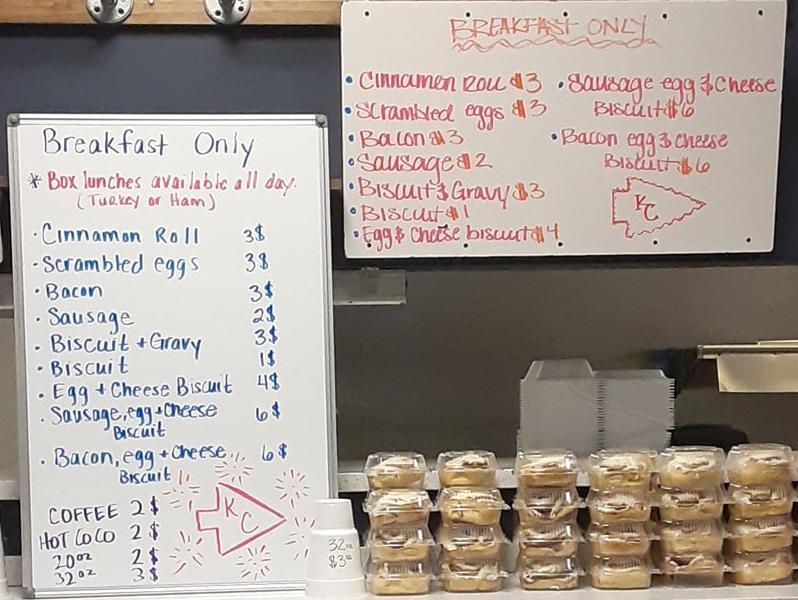 Breakfast Only
* Box lunches available all day.
(Turkey or Ham)
· Cinnamon Roll 3$
· Scrambled eggs 3$
· Bacon 3$
· Sausage 2$
· Biscuit + Gravy 3$
· Biscuit 1$
· Egg + Cheese Biscuit 4$
· Sausage, egg + Cheese 6$
Biscuit
· Bacon, egg + Cheese 6$
Biscuit
COFFEE 2$
HOT COCO 2$
20oz 2$
32oz 3$
KC
BREAKFAST ONLY
• Cinnamon Roll $3
• Scrambled eggs $3
• Bacon $3
• Sausage $2
• Biscuit & Gravy $3
• Biscuit $1
• Egg & Cheese biscuit $4
• Sausage egg & Cheese
Biscuit $6
• Bacon egg & cheese
Biscuit $6
KC
32oz
$3